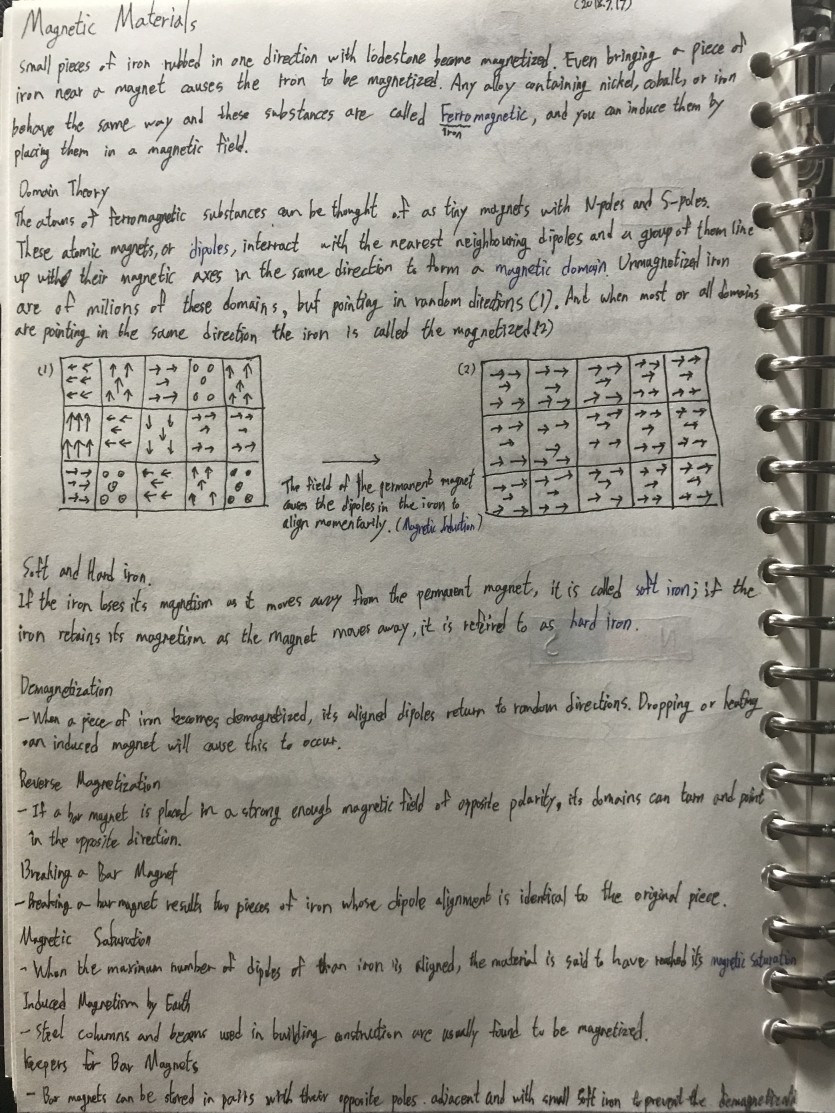 (2018.7.17)
Magnetic Materials
Small pieces of iron rubbed in one direction with lodestone become magnetized. Even bringing a piece of
iron near a magnet causes the iron to be magnetized. Any alloy containing nickel, cobalt, or iron
behave the same way and these substances are called Ferromagnetic, and you can induce them by
iron
placing them in a magnetic field.
Domain Theory
The atoms of ferromagnetic substances can be thought of as tiny magnets with N-poles and S-poles.
These atomic magnets, or dipoles, interract with the nearest neighbouring dipoles and a group of them line
up with their magnetic axes in the same direction to form a magnetic domain. Unmagnetized iron
are of milions of these domains, but pointing in random directions (1). And when most or all domains
are pointing in the same direction the iron is called the magnetized (2)
(1)
(2)
The field of the permanent magnet
causes the dipoles in the iron to
align momentarily. (Magnetic Induction)
Soft and Hard iron.
If the iron loses its magnetism as it moves away from the permanent magnet, it is called soft iron; if the
iron retains its magnetism as the magnet moves away, it is referred to as hard iron.
Demagnetization
- When a piece of iron becomes demagnetized, its aligned dipoles return to random directions. Dropping or heating
an induced magnet will cause this to occur.
Reverse Magnetization
- If a bar magnet is placed in a strong enough magnetic field of opposite polarity, its domains can turn and point
in the opposite direction.
Breaking a Bar Magnet
- Breaking a bar magnet results two pieces of iron whose dipole alignment is identical to the original piece.
Magnetic Saturation
- When the maximum number of dipoles of than iron is aligned, the material is said to have reached its magnetic saturation
Induced Magnetism by Earth
- Steel columns and beams used in building construction are usually found to be magnetized.
Keepers for Bar Magnets
- Bar magnets can be stored in pairs with their opposite poles adjacent and with small soft iron to prevent the